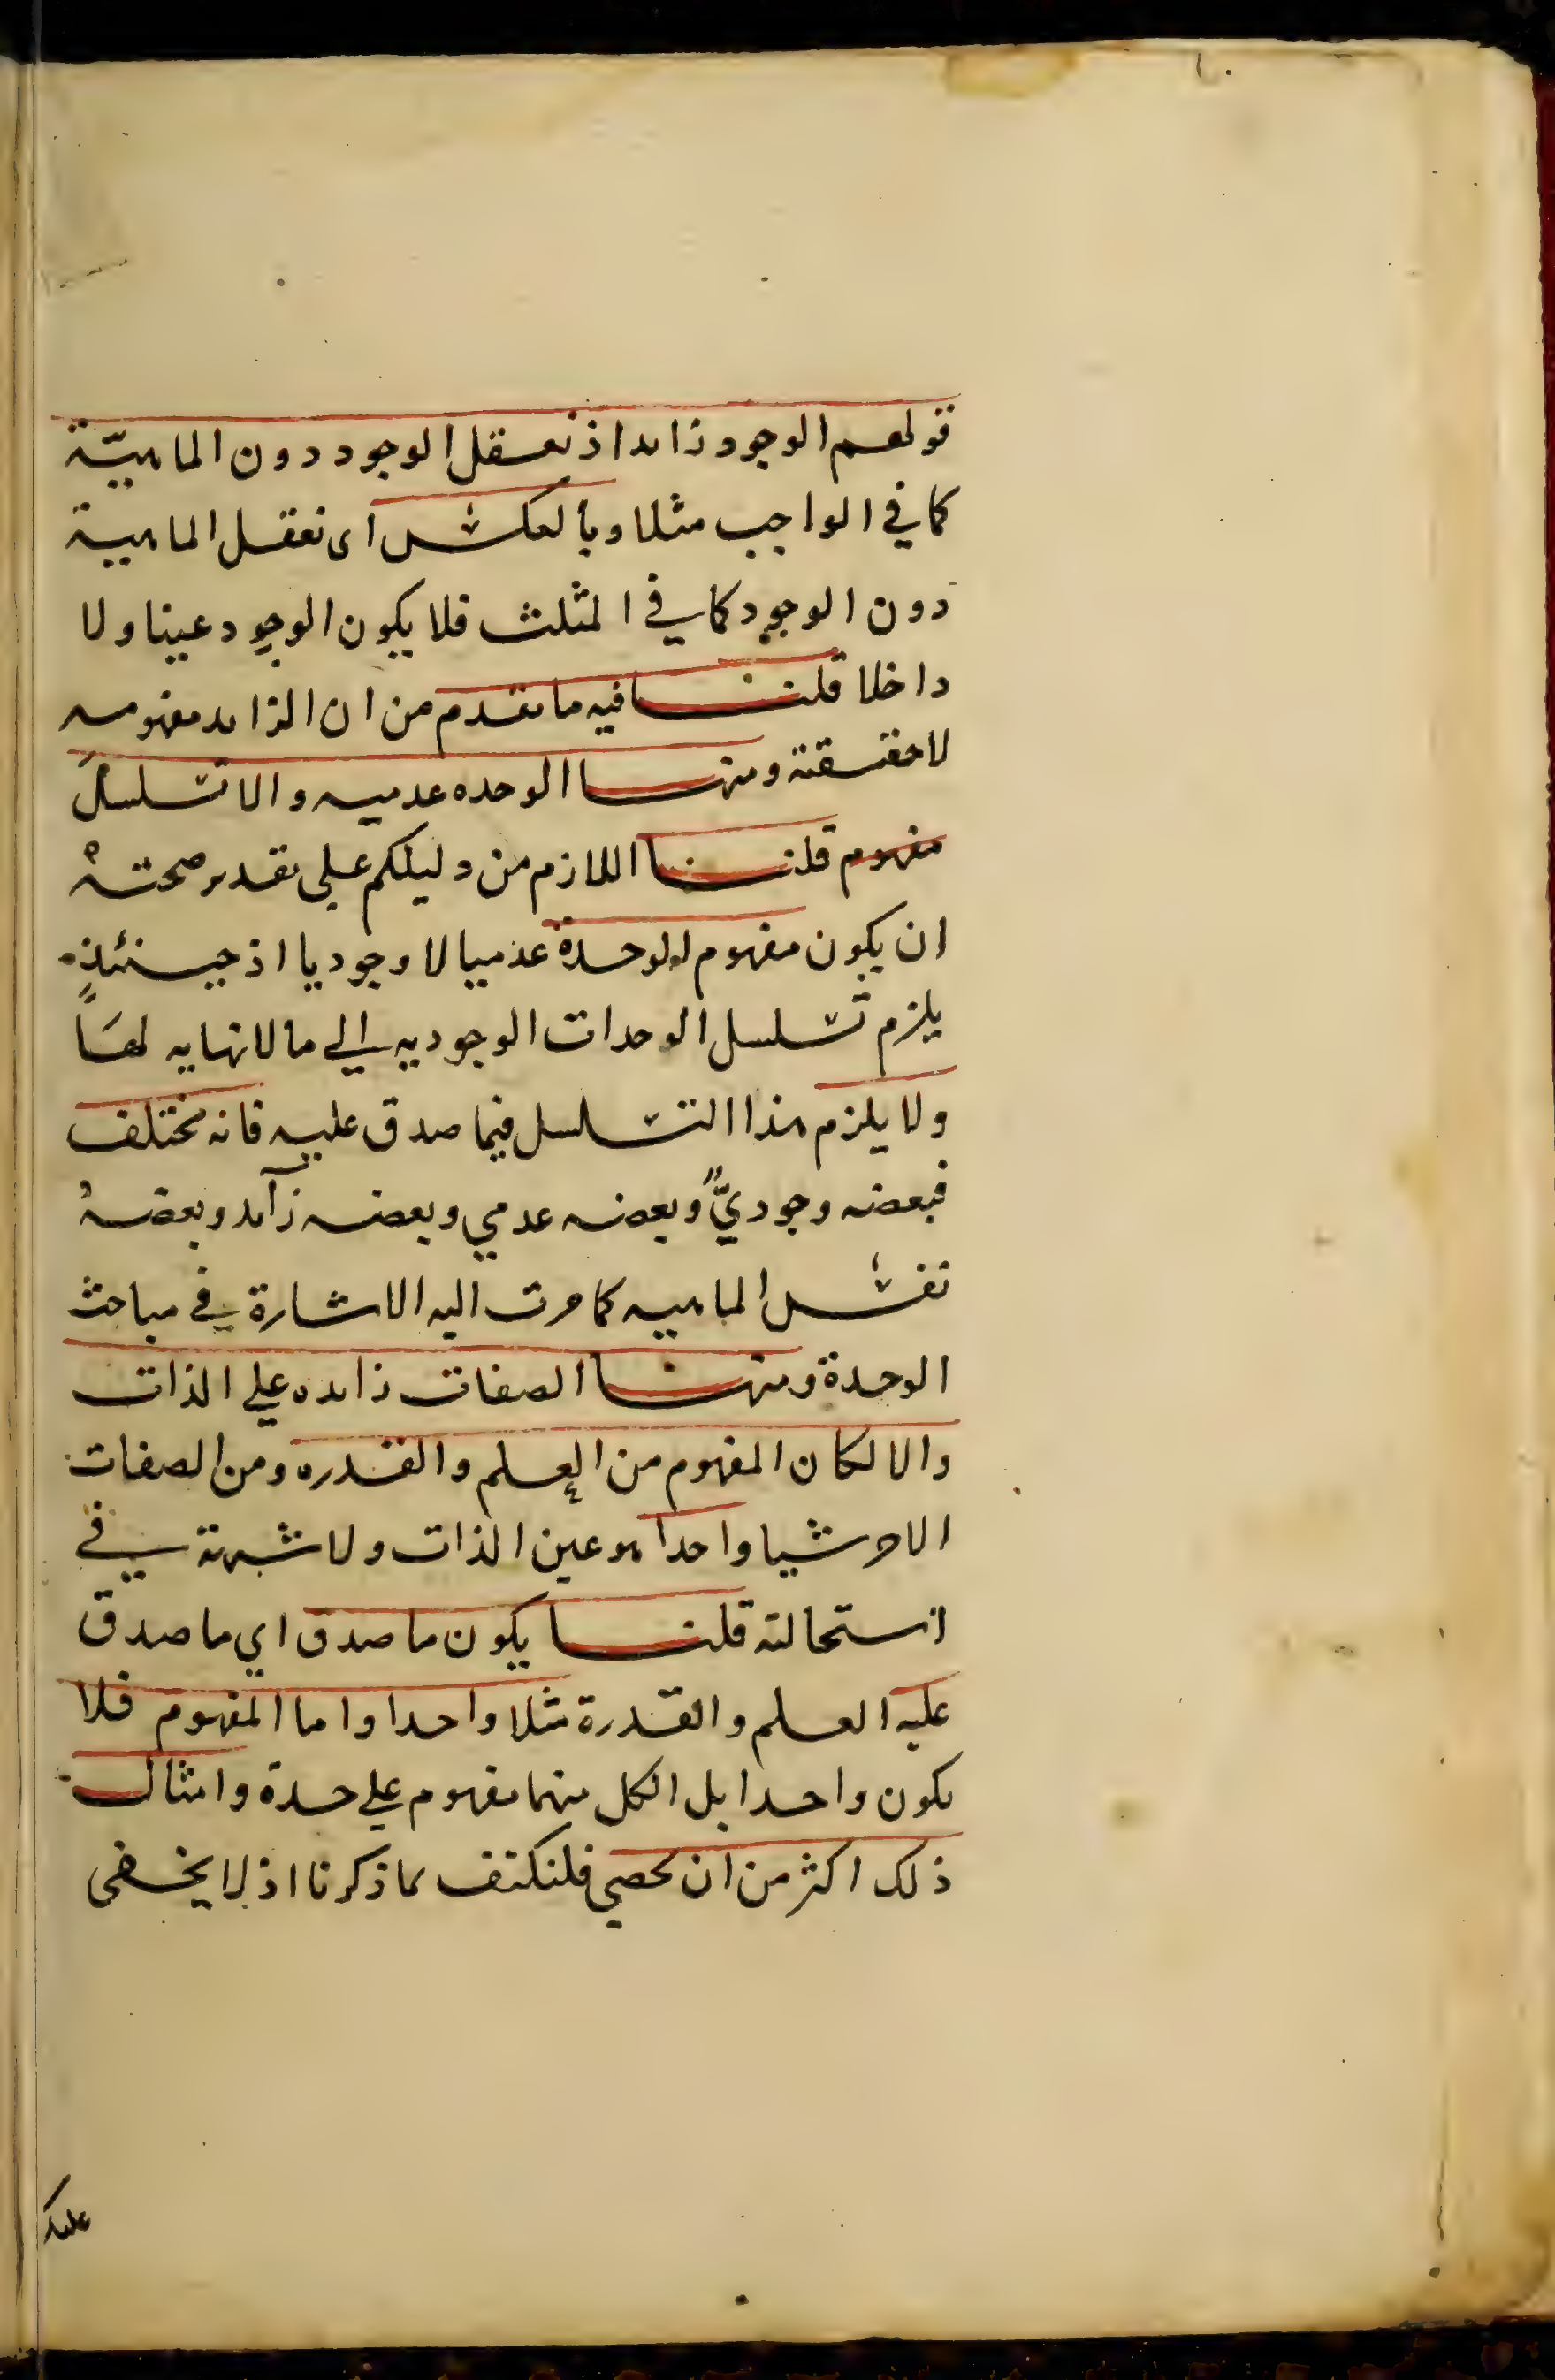 ١٠
قولهم الوجود زايد اذ نعقل الوجود دون الماهيّة
كما في الواجب مثلا وبالعكس اى نعقل الماهية
دون الوجود كما في المثلث فلا يكون الوجود عينا ولا
داخلا قلنا فيه ما تقدم من ان الزايد مفهومه
لا حقيقته ومنها الوحده عدميه والا تسلسل
مفهوم قلنا اللازم من دليلكم على تقدير صحته
ان يكون مفهوم الوحدة عدميا لا وجوديا اذ حينئذٍ
يلزم تسلسل الوحدات الوجوديه الي ما لا نهايه لهَا
ولا يلزم هذا التسلسل فيما صدق عليه فانه مختلف
فبعضه وجوديٌّ وبعضه عدمي وبعضه زآيد وبعضهُ
نفس الماهيه كما مرت اليه الاشارة في مباحث
الوحدة ومنها الصفات زايده علي الذات
والا لكان المفهوم من العلم والقدره ومن الصفات
الاخر شيا واحدا هو عين الذات ولا شبهة في
استحالته قلنا يكون ما صدق اي ما صدق
عليه العلم والقدرة مثلا واحدا واما المفهوم فلا
يكون واحدا بل الكل منهما مفهوم علي حدة وامثال
ذلك اكثر من ان تحصي فلنكتف بما ذكرنا اذ لا يخفى
عليك